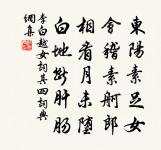 東陽素足女
會稽素舸郎
相看月未墮
白地斷肝腸
李白越女詞其四詞典
網集